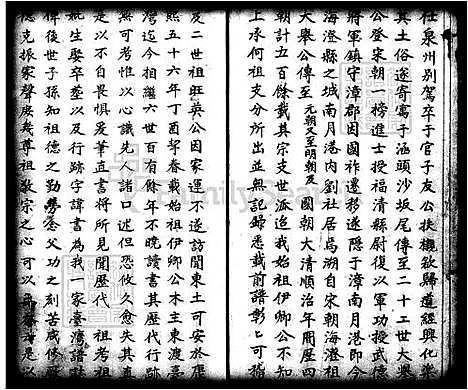 任泉州別駕卒于官子友公扶櫬欲歸道經興化樂
其土俗遂寄寓于涵頭沙坂尾傳至二十三世大舉
公登宋朝一榜進士授福清縣尉復以軍功授武德
將軍鎮守漳郡因國祚遷移遂隱于漳南月港即今
海澄縣之城南月港内劉社居焉溯自宋端宗年間
大舉公傳至元朝又至明朝及國朝大清順治年間歷四
朝計五百餘載其宗支世派迨我始祖伊卿公不知
上承何祖支分所出並無記錄悉載前譜彰彰可稽
及二世祖旺英公因家運不遂訪聞東土可安於康
熙五十六年丁酉挈眷載始祖伊卿公木主東渡臺
灣迄今相繼六世百有餘年不晚讀書其歷代行跡
無可考惟以心識先人諸口述但恐攸久愈失其真
是以不自畏惧爰筆直書將所見聞歷代祖考祖
妣生娶卒塟以及行跡字諱書為我一家臺灣譜誌
俾後世子孫知祖德之勤勞念父功之刻苦咸修
德克振家聲庶幾尊祖敬宗之心可以
FamilySearch